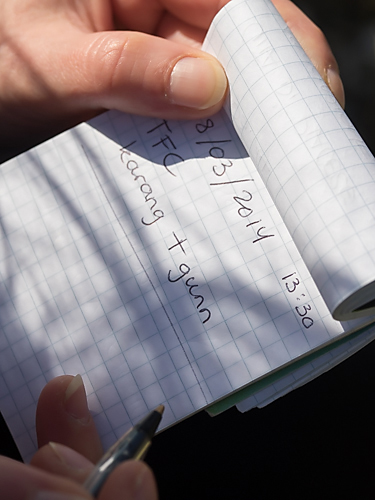 8/03/2014 13:30
TFC
karang + gunn